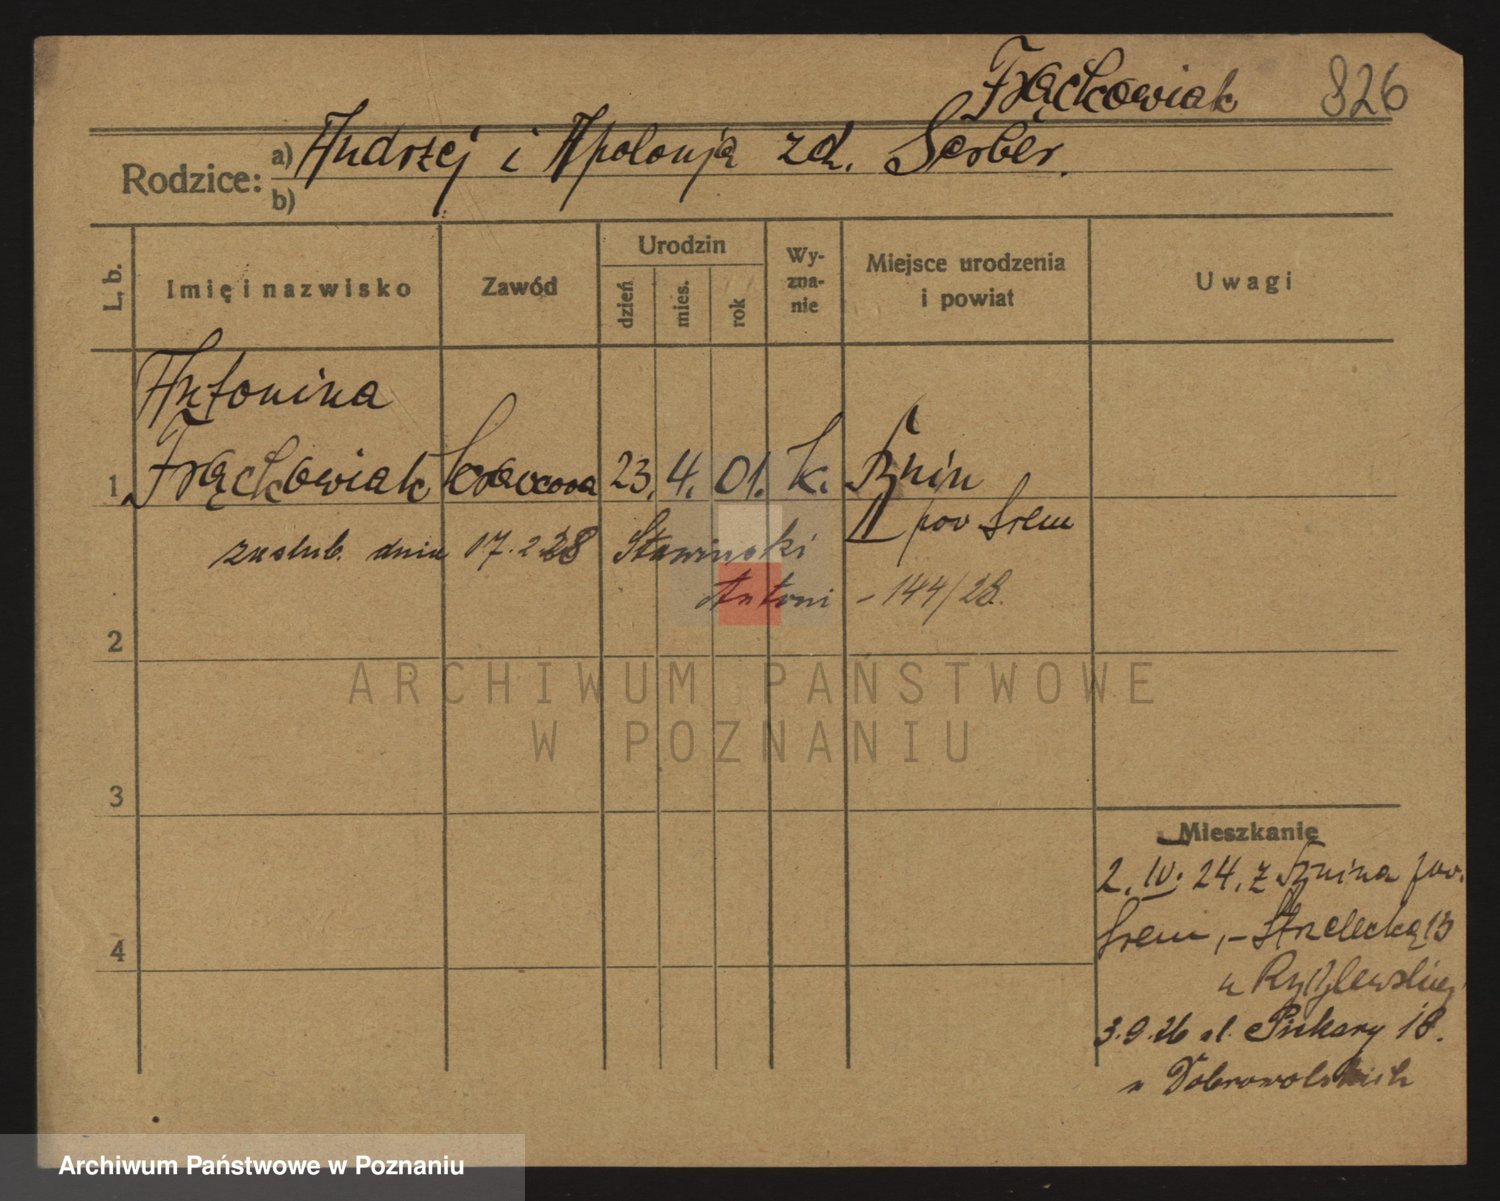 Frąckowiak 826
Rodzice: a) Andrzej i Apolonja zd. Serber.
b)
L. b.
Imię i nazwisko
Zawód
Urodzin
dzień
mies.
rok
Wy-
zna-
nie
Miejsce urodzenia
i powiat
Uwagi
Antonina
1 Frąckowiak krawcowa 23. 4. 01. k. Bnin
pow Śrem
zaślub. dnia 17. 2. 28 Sławiński
Antoni - 144/28.
2
3
4
ARCHIWUM PAŃSTWOWE
W POZNANIU
Mieszkanie
2. IV. 24. z Bnina pow.
Śrem, - Strzelecka 13
u
3.9.26 ul. Piekary 18.
u Dobrowolskich
Archiwum Państwowe w Poznaniu